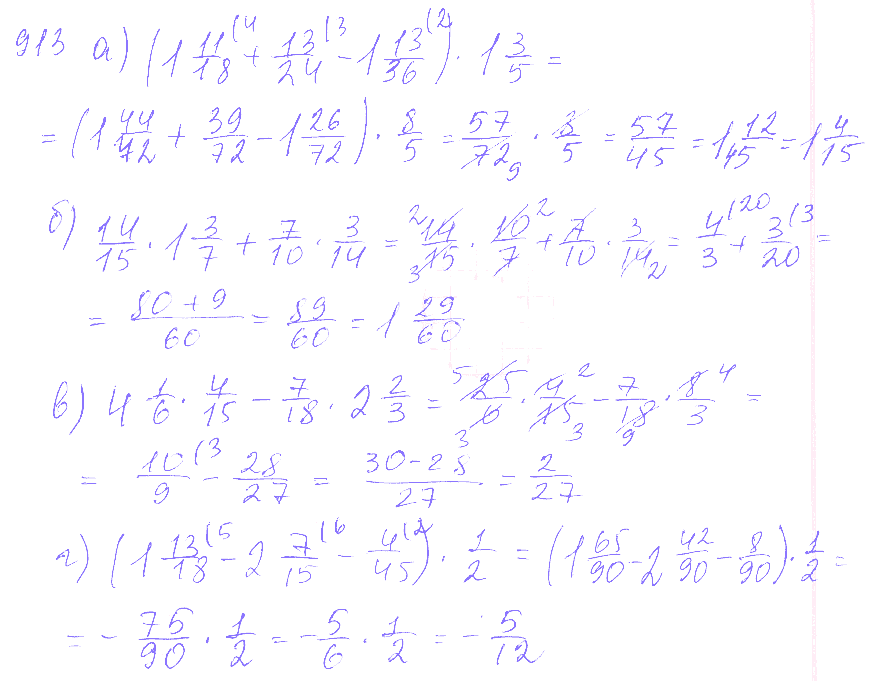 913 а) (1 11/18 (4 + 13/24 (3 - 1 13/36 (2) · 1 3/5 =
= (1 44/72 + 39/72 - 1 26/72) · 8/5 = 57/72 9 · 8/5 = 57/45 = 1 12/45 = 1 4/15
б) 14/15 · 1 3/7 + 7/10 · 3/14 = 2 14/15 3 · 10/7 2 + 7/10 · 3/14 2 = 4/3 (20 + 3/20 (3 =
= 80 + 9/60 = 89/60 = 1 29/60
в) 4 1/6 · 4/15 - 7/18 · 2 2/3 = 5 25/6 3 · 4/15 3 2 - 7/18 9 · 8/3 4 =
= 10/9 (3 - 28/27 = 30-28/27 = 2/27
г) (1 13/18 (5 - 2 7/15 (6 - 4/45 (2) · 1/2 = (1 65/90 - 2 42/90 - 8/90) · 1/2 =
= - 75/90 · 1/2 = - 5/6 · 1/2 = - 5/12